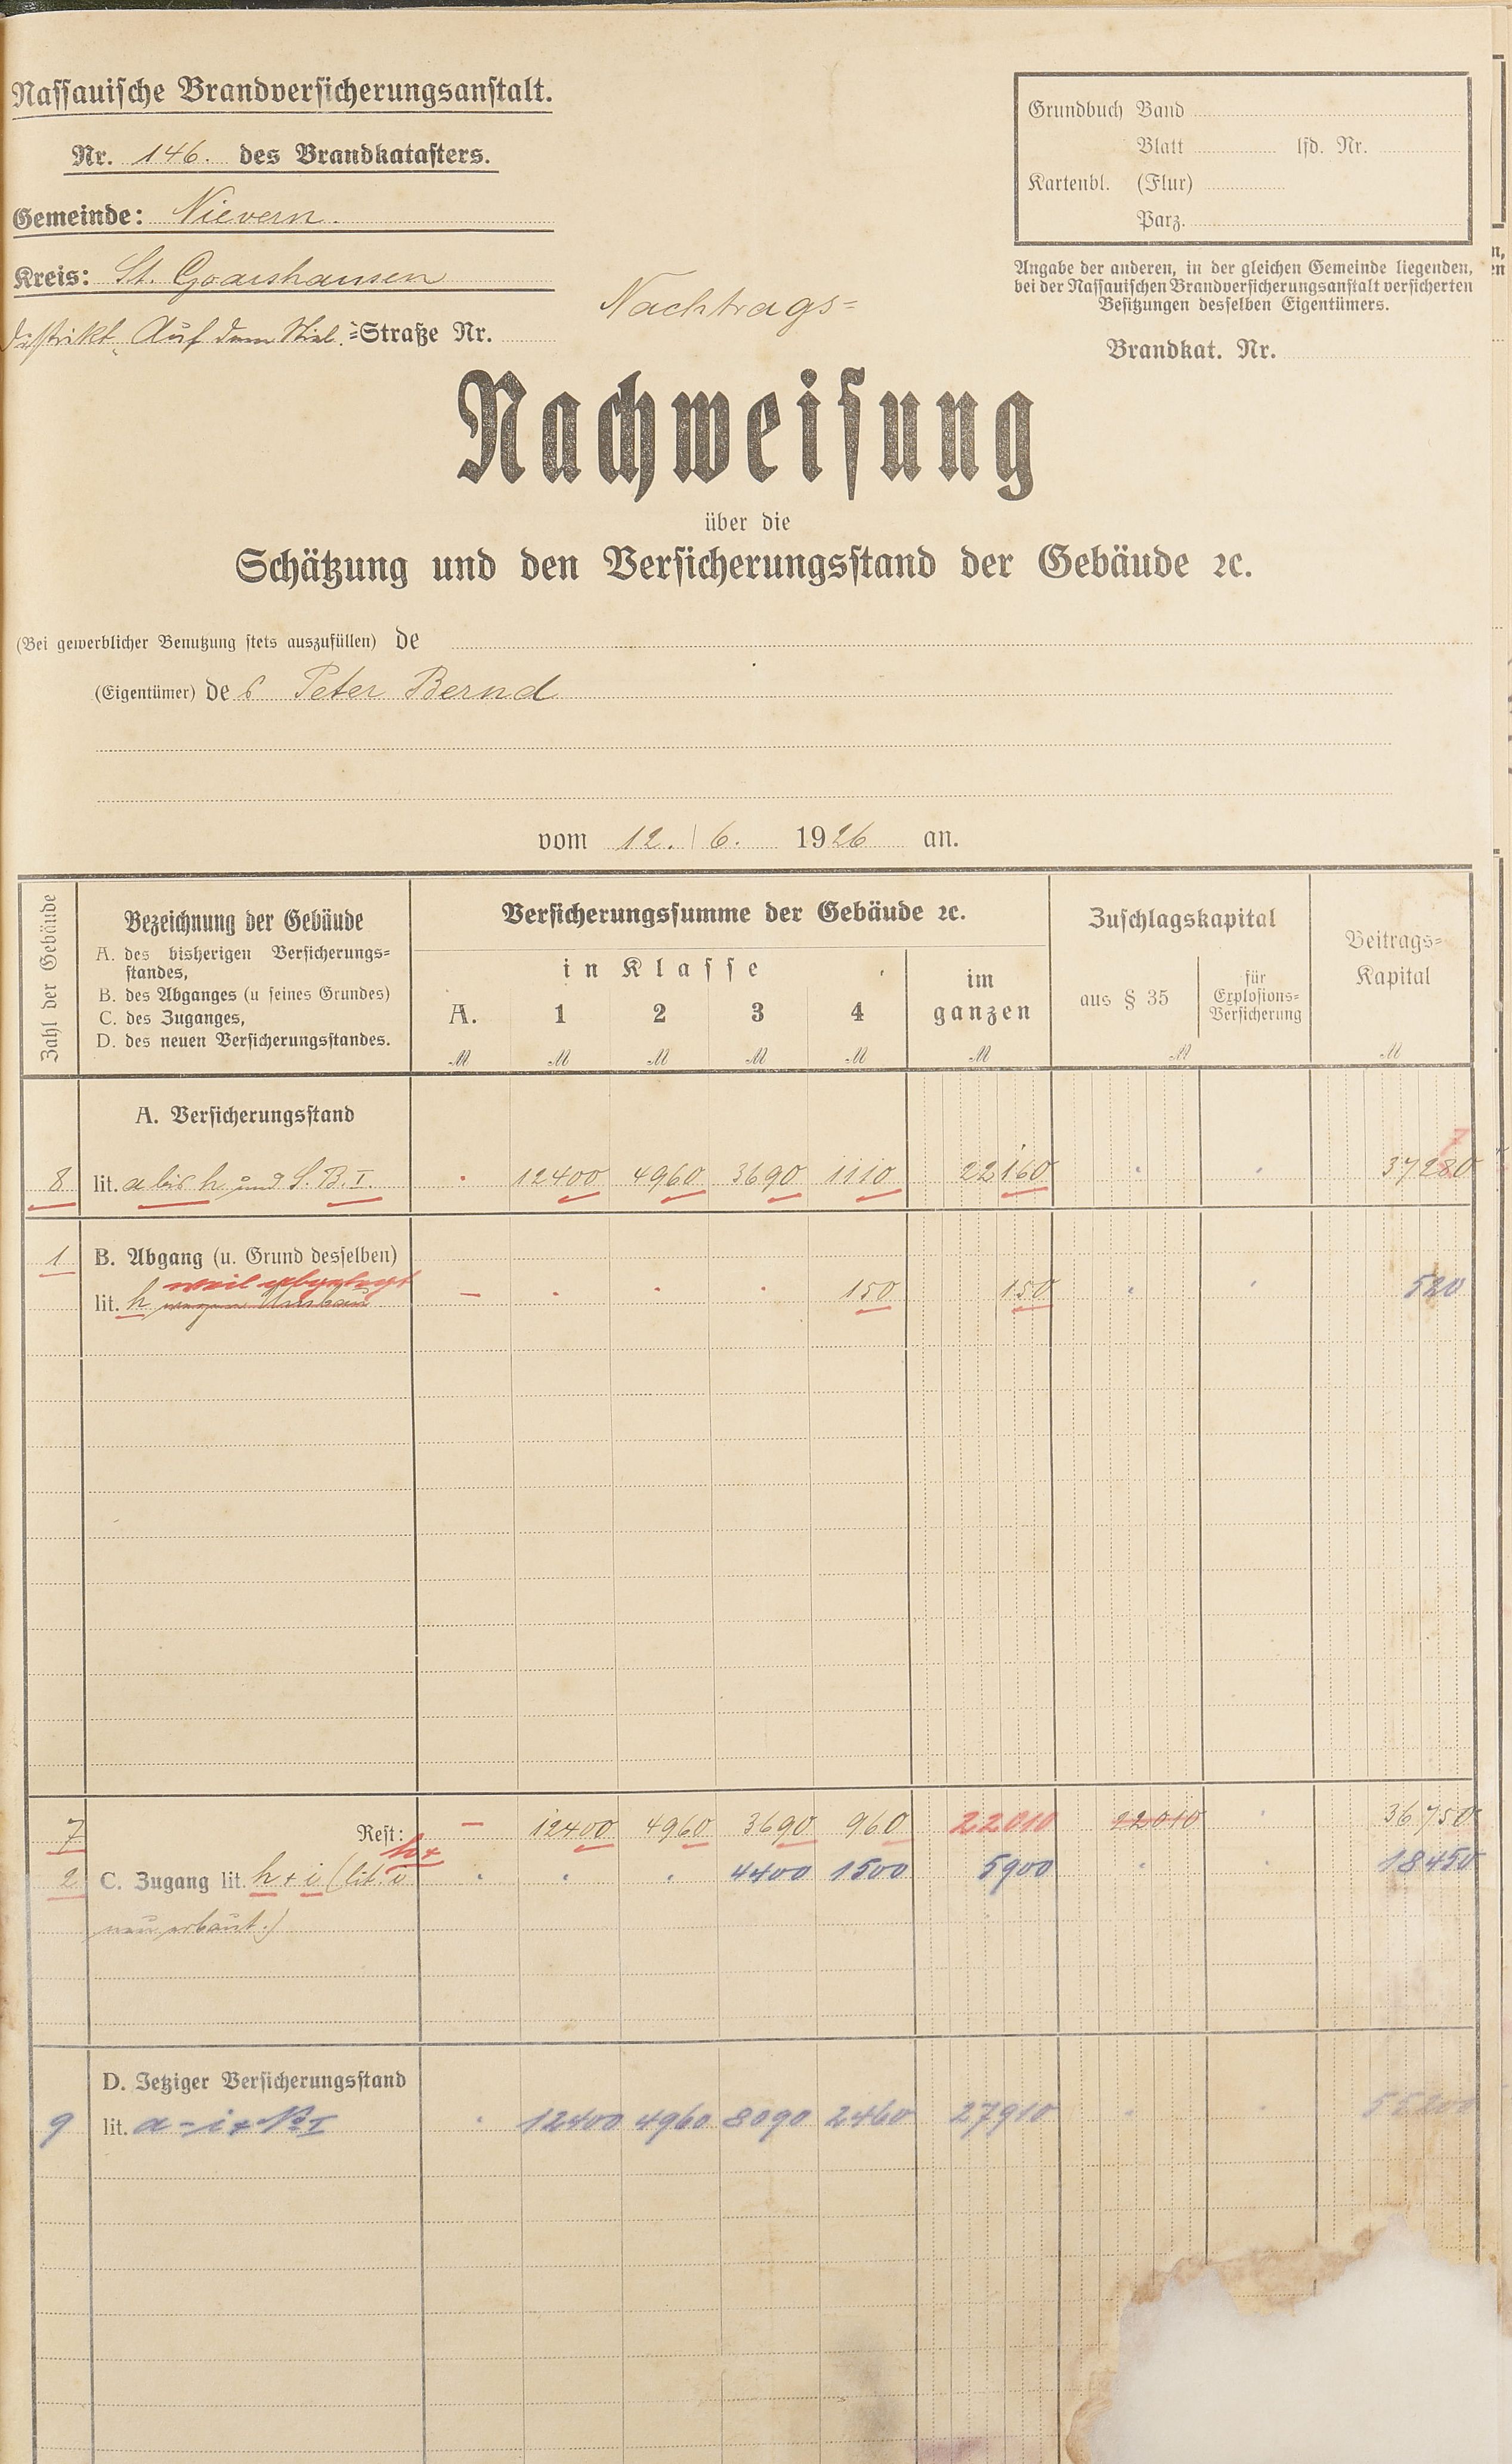 Nassauische Brandversicherungsanstalt.
Nr. 146. des Brandkatasters.
Gemeinde: Nievern.
Kreis: St. Goarshausen
Distrikt „Auf dem -Straße Nr.
Grundbuch Band
Blatt lfd. Nr.
Kartenbl. (Flur)
Parz.
Angabe der anderen, in der gleichen Gemeinde liegenden,
bei der Nassauischen Brandversicherungsanstalt versicherten
Besitzungen desselben Eigentümers.
Brandkat. Nr.
Nachtrags-
Nachweisung
über die
Schätzung und den Versicherungsstand der Gebäude ꝛc.
(Bei gewerblicher Benutzung stets auszufüllen) de
(Eigentümer) des Peter Bernd
vom 12. 6. 1926 an.
Zahl der Gebäude
Bezeichnung der Gebäude
A. des bisherigen Versicherungs-
standes,
B. des Abganges (u seines Grundes)
C. des Zuganges,
D. des neuen Versicherungsstandes.
Versicherungssumme der Gebäude ꝛc.
in Klasse
A. 1 2 3 4
im
ganzen
M M M M M M
Zuschlagskapital
aus § 35
für
Explosions-
Versicherung
M
Beitrags-
Kapital
M
A. Versicherungsstand
8 lit. a bis h und S. B. I. . 12400 4960 3690 1110 22160 . . 37280
7
1 B. Abgang (u. Grund desselben)
weil abgelegt
lit. h wegen Umbau – . . . 150 150 . . 520
7 Rest: – 12400 4960 3690 960 22010 22010 . 36750
h+
2 C. Zugang lit. h + i (lit. i . . . 4400 1500 5900 . . 18450
neu erbaut.)
D. Jetziger Versicherungsstand
9 lit. a - i + No I . 12400 4960 8090 2460 27910 . . 55200